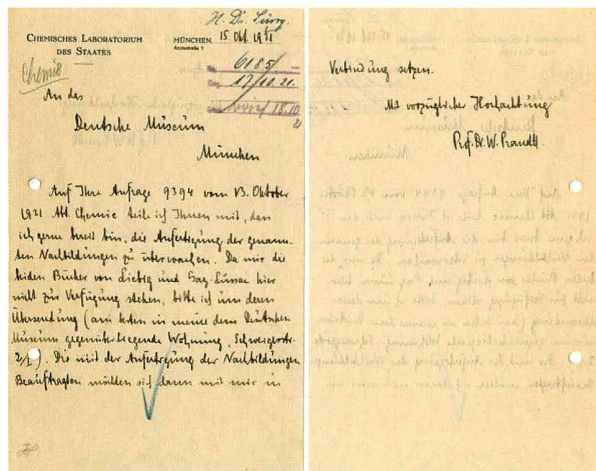 H. Dr. Fürg.
CHEMISCHES LABORATORIUM
DES STAATES
MÜNCHEN, 15. Okt 1921
Arcisstraße 1
Chemie
6185
17.10.21.
18.10
21
An das
Deutsche Museum
München
Auf Ihre Anfrage 9394 vom 13. Oktober
1921 Abt. Chemie teile ich Ihnen mit, dass
ich gerne bereit bin, die Anfertigung der genann-
ten Nachbildungen zu überwachen. Da mir die
beiden Bücher von Liebig und Gay-Lussac hier
nicht zur Verfügung stehen, bitte ich um deren
Übersendung (am besten in meine dem Deutschen
Museum gegenüberliegende Wohnung, Schweigerstr.
2/I). Die mit der Anfertigung der Nachbildungen
Beauftragten möchten sich dann mit mir in
Verbindung setzen.
Mit vorzüglicher Hochachtung
Prof. Dr. W. Prandtl.